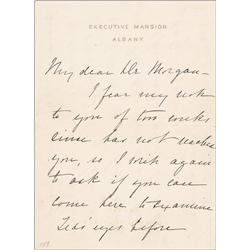 EXECUTIVE MANSION
ALBANY
My dear Dr Morgan -
I fear my note
to you of two weeks
since has not reached
you, so I write again
to ask if you can
come here to examine
Ted's eyes before